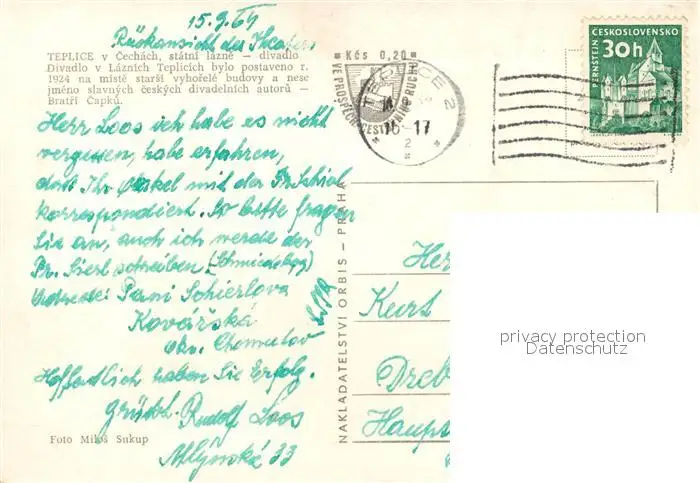 15.9.64
Rückansicht des Theaters
TEPLICE v Čechách, státní lázně — divadlo
Divadlo v Lázních Teplicích bylo postaveno r.
1924 na místě starší vyhořelé budovy a nese
jméno slavných českých divadelních autorů —
Bratří Čapků.
Herr Loos ich habe es nicht
vergessen, habe erfahren,
daß Ihr Onkel mit der Fr. Schierl
korrespondiert. So bitte fragen
Sie an, auch ich werde der
Fr. Sierl schreiben (Schmiedeberg)
Adresse: Paní Schierlova
Kovářská
okr. Chomutov
Hoffentlich haben Sie Erfolg.
Grüßt. Rudolf Loos
Mlýnská 33
Foto Miloš Sukup
NAKLADATELSTVÍ ORBIS - PRAHA
Kčs 0,20
VE PROSPĚCH CESTOVNÍHO RUCHU
TEPLICE 2
16-17
2
ČESKOSLOVENSKO
PERNŠTEJN
30h
Her
Kurt
Dreb
Haupt
privacy protection
Datenschutz